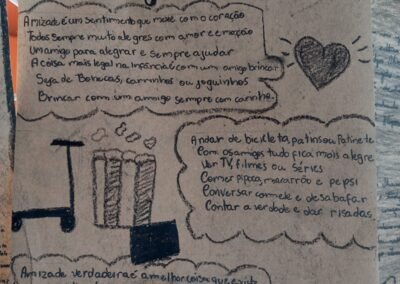 Amizade é um sentimento que mexe com o coração
Todos sempre muito alegres com amor e emoção
Um amigo para alegrar e sempre ajudar
A coisa mais legal na infância é com um amigo brincar
Seja de bonecas, carrinhos ou joguinhos
Brincar com um amigo sempre com carinho.
Andar de bicicleta, patins ou patinete
Com os amigos tudo fica mais alegre
Ver TV, filmes ou séries
Comer pipoca, macarrão e pepsi
Conversar com ele e desabafar
Contar a verdade e dar risadas
Amizade verdadeira é a melhor coisa que existe